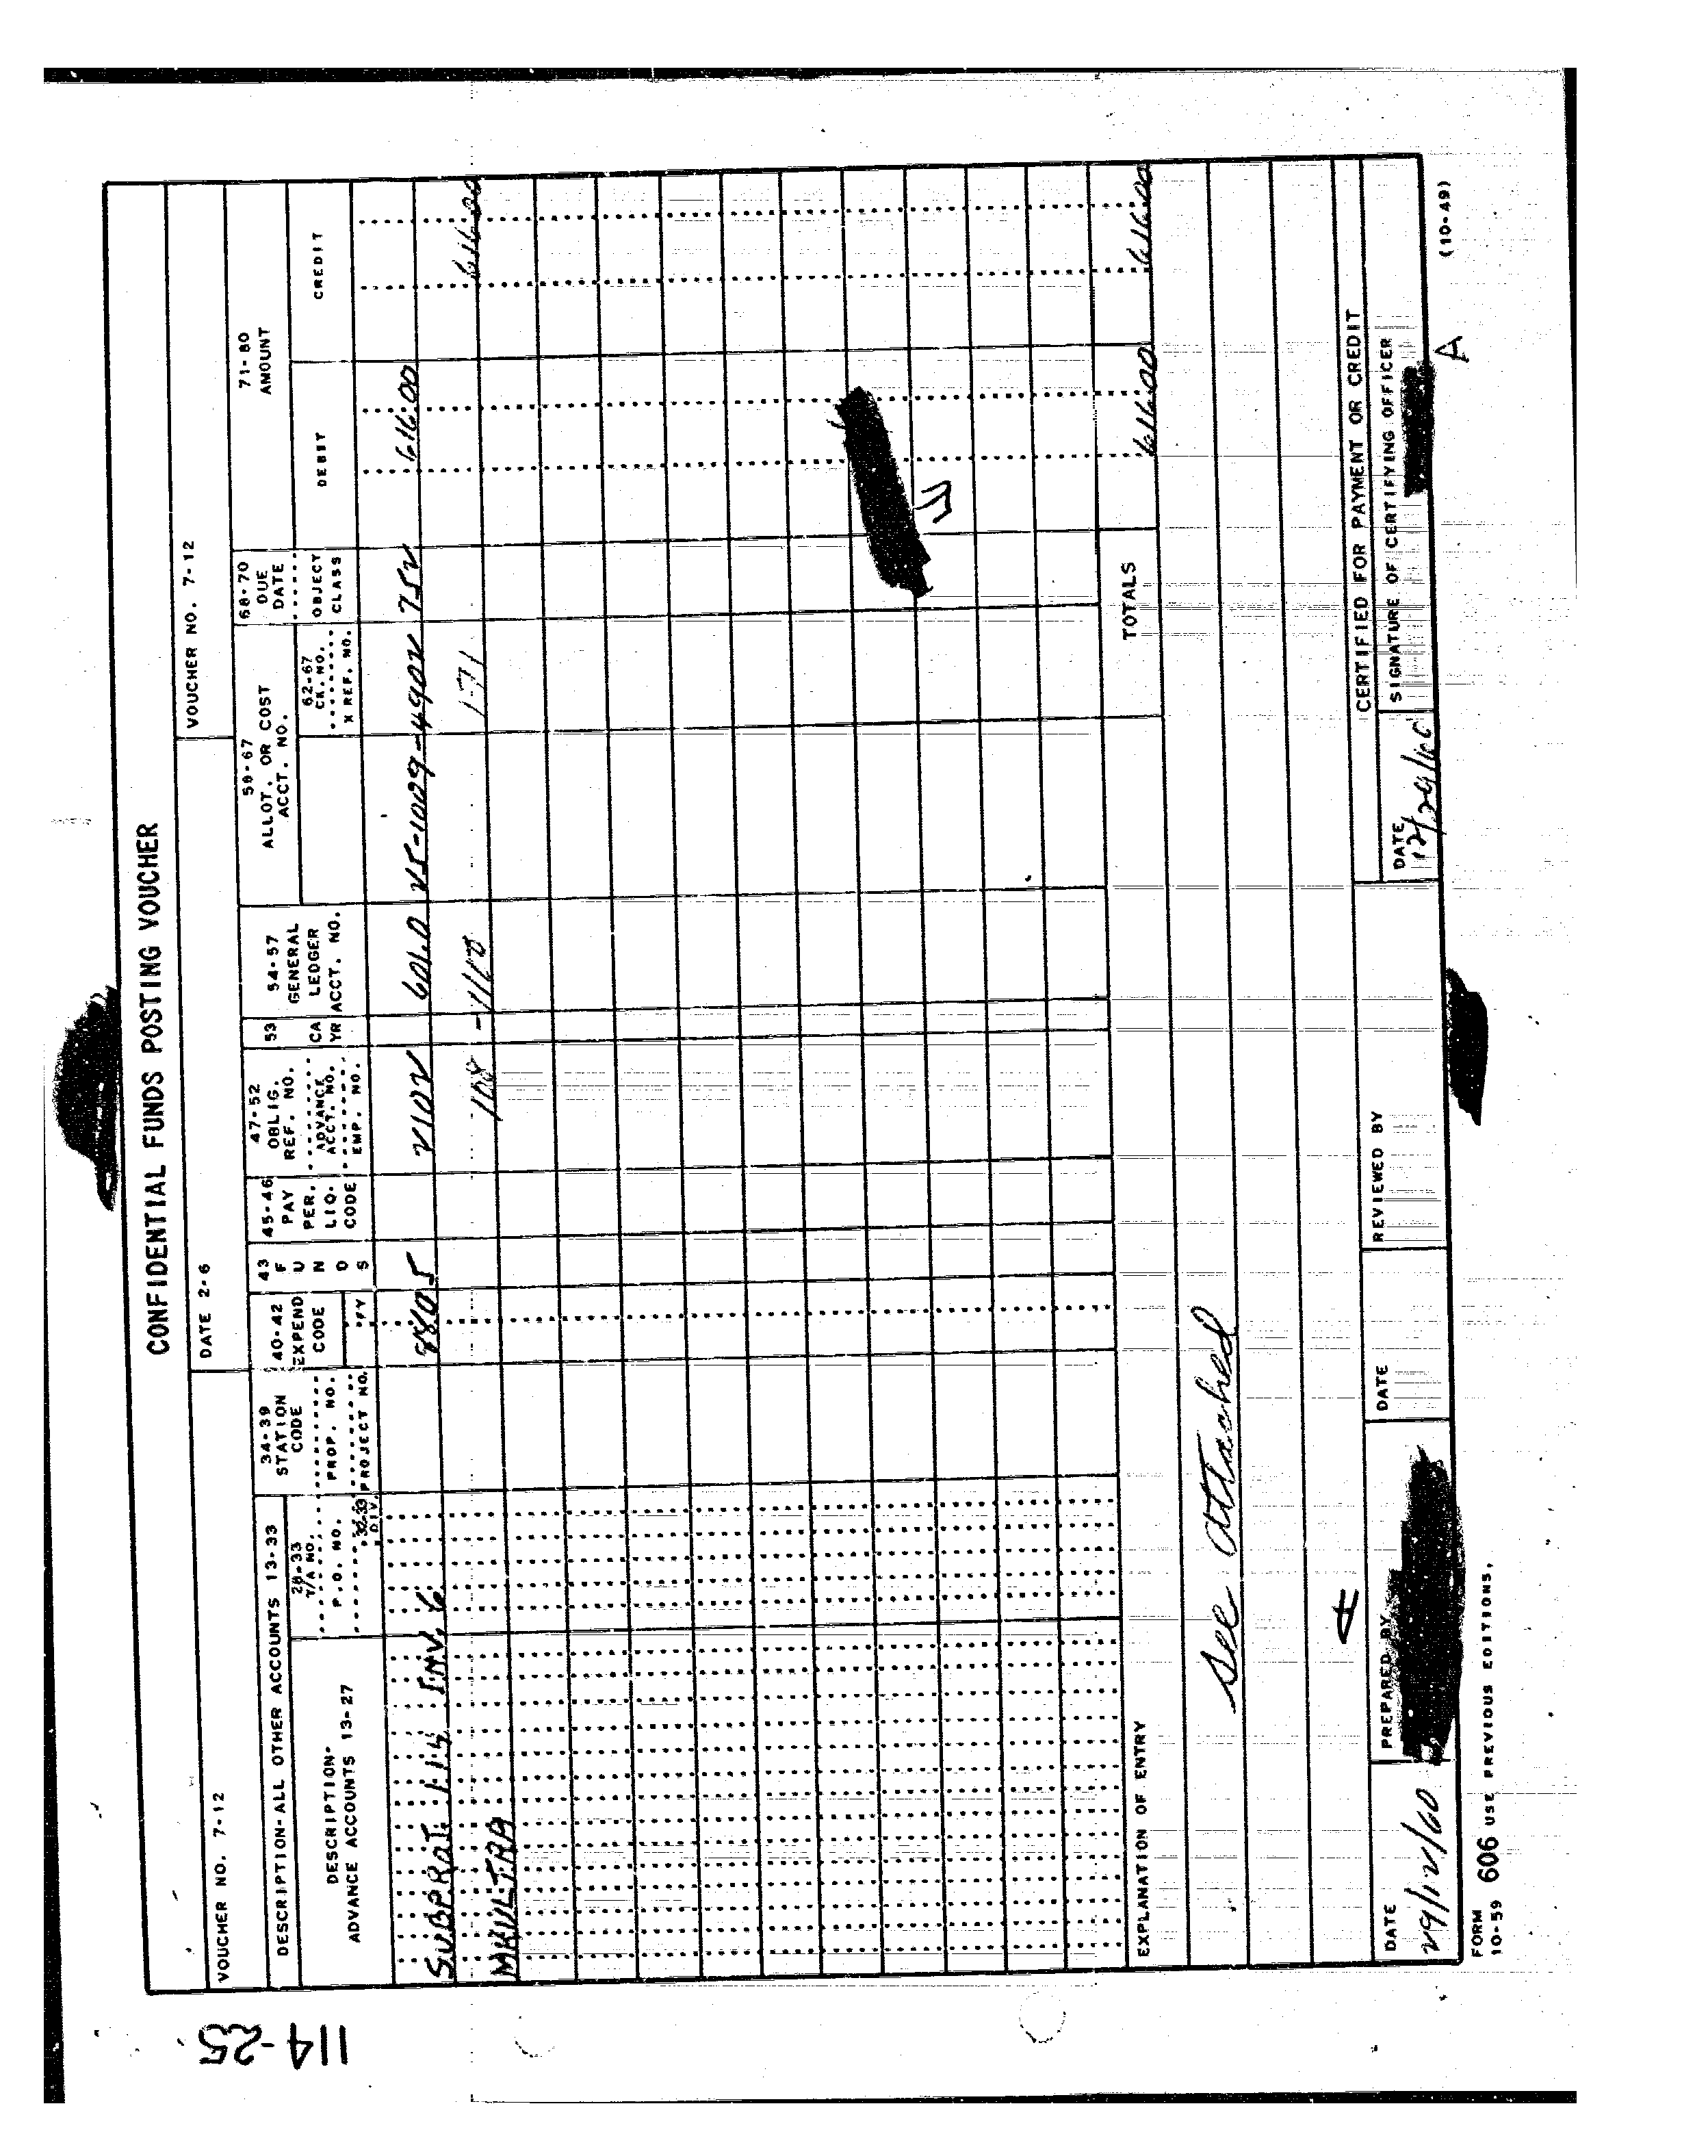 CONFIDENTIAL FUNDS POSTING VOUCHER
VOUCHER NO. 7-12 DATE 2-6 VOUCHER NO. 7-12
DESCRIPTION-ALL OTHER ACCOUNTS 13-33
DESCRIPTION-
ADVANCE ACCOUNTS 13-27
28-33
T/A NO.
P.O. NO.
32-33
DIV.
34-39
STATION
CODE
PROP. NO.
PROJECT NO.
40-42
EXPEND
CODE
FY
43
F
U
N
D
S
45-46
PAY
PER.
LIQ.
CODE
47-52
OBLIG.
REF. NO.
ADVANCE
ACCT. NO.
EMP. NO.
53
CA
YR
54-57
GENERAL
LEDGER
ACCT. NO.
58-67
ALLOT. OR COST
ACCT. NO.
62-67
CK. NO.
X REF. NO.
68-70
DUE
DATE
OBJECT
CLASS
71-80
AMOUNT
DEBIT CREDIT
SUBPROJ. 114 INV. 6 2102 601.0 25-1009-4902 752 616.00
MKULTRA 171 616.00
TOTALS 616.00 616.00
EXPLANATION OF ENTRY
See attached
CERTIFIED FOR PAYMENT OR CREDIT
DATE PREPARED BY DATE REVIEWED BY DATE SIGNATURE OF CERTIFYING OFFICER
29/12/60 12/29/60
A
FORM
10-59 606 USE PREVIOUS EDITIONS. (10-49)
114-25